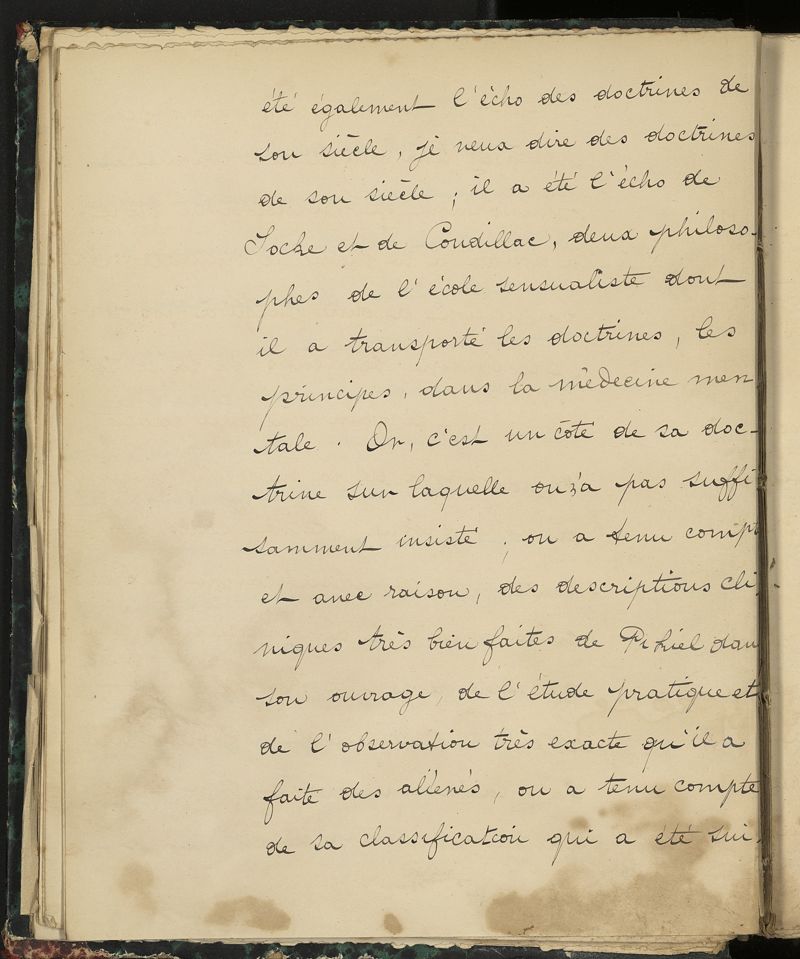 été également l'écho des doctrines de
son siècle, je veux dire des doctrines
de son siècle ; il a été l'écho de
Locke et de Condillac, deux philoso-
phes de l'école sensualiste dont
il a transporté les doctrines, les
principes, dans la médecine men
tale. Or, c'est un côté de sa doc-
trine sur laquelle on n'a pas suffi
samment insisté ; on a tenu compt
et avec raison, des descriptions cli
niques très bien faites de dan
son ouvrage, de l'étude pratique et
de l'observation très exacte qu'il a
faite des aliénés, on a tenu compte
de sa classification qui a été sui-